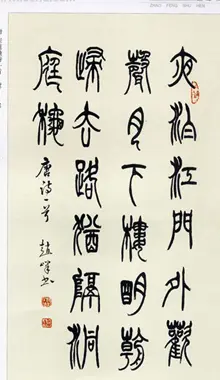 夜泊江門外歡
聲月下樓明朝
歸去路猶隔洞
庭秋
唐詩一首 趙 書